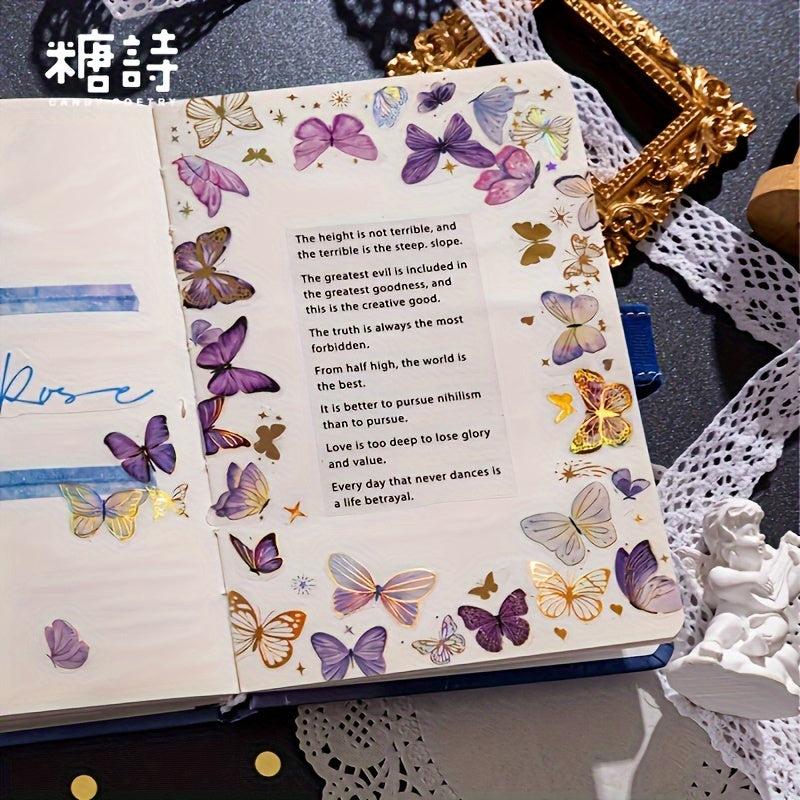 糖詩
CANDY POETRY
Rose
The height is not terrible, and
the terrible is the steep. slope.
The greatest evil is included in
the greatest goodness, and
this is the creative good.
The truth is always the most
forbidden.
From half high, the world is
the best.
It is better to pursue nihilism
than to pursue.
Love is too deep to lose glory
and value.
Every day that never dances is
a life betrayal.